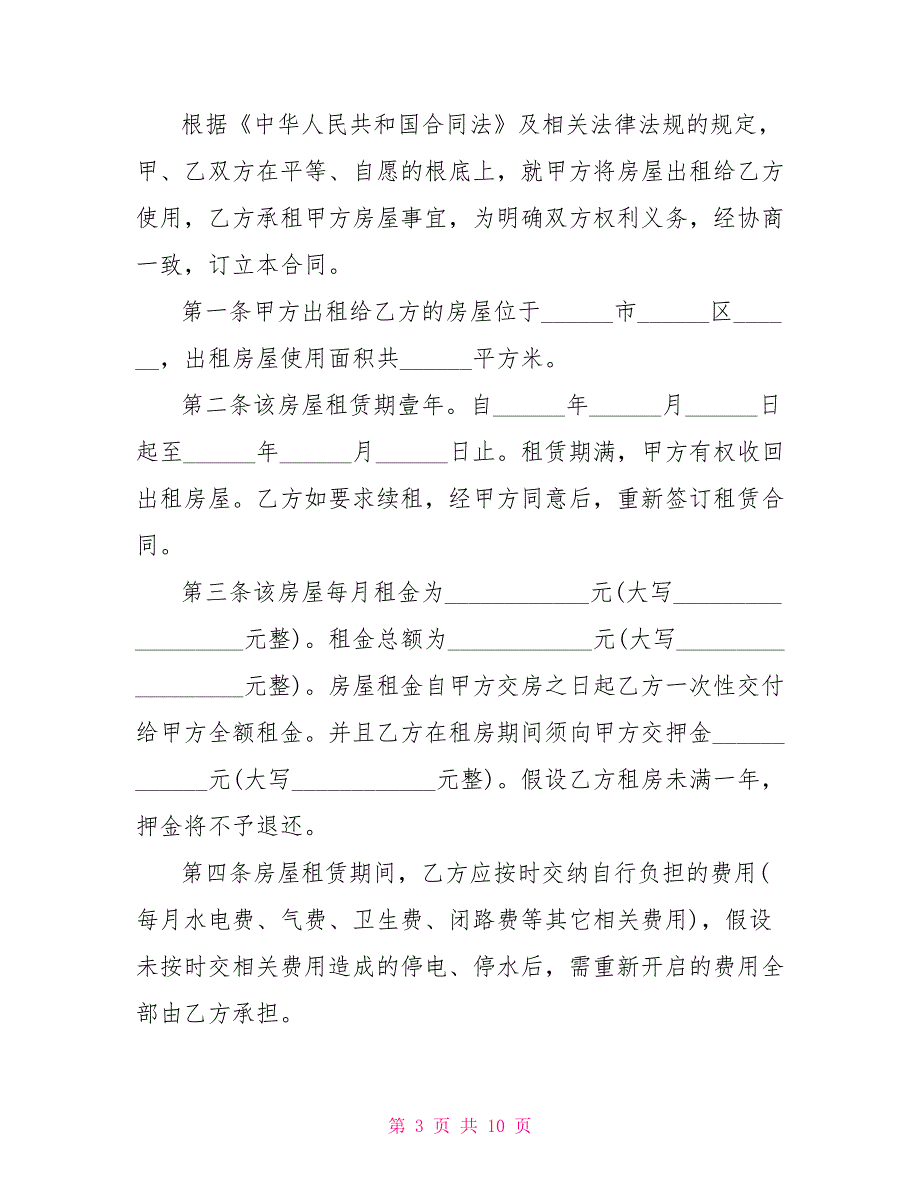 根据《中华人民共和国合同法》及相关法律法规的规定，
甲、乙双方在平等、自愿的根底上，就甲方将房屋出租给乙方
使用，乙方承租甲方房屋事宜，为明确双方权利义务，经协商
一致，订立本合同。
第一条甲方出租给乙方的房屋位于______市______区____
__，出租房屋使用面积共______平方米。
第二条该房屋租赁期壹年。自______年______月______日
起至______年______月______日止。租赁期满，甲方有权收回
出租房屋。乙方如要求续租，经甲方同意后，重新签订租赁合
同。
第三条该房屋每月租金为____________元(大写_________
_________元整)。租金总额为____________元(大写_________
_________元整)。房屋租金自甲方交房之日起乙方一次性交付
给甲方全额租金。并且乙方在租房期间须向甲方交押金______
______元(大写____________元整)。假设乙方租房未满一年，
押金将不予退还。
第四条房屋租赁期间，乙方应按时交纳自行负担的费用(
每月水电费、气费、卫生费、闭路费等其它相关费用)，假设
未按时交相关费用造成的停电、停水后，需重新开启的费用全
部由乙方承担。
第 3 页 共 10 页